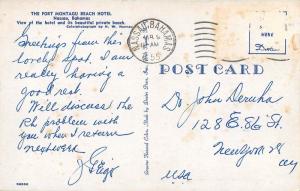 THE FORT MONTAGU BEACH HOTEL
Nassau, Bahamas
View of the hotel and its beautiful private beach.
Greetings from this
lovely spot. I am
really having a
good rest.
Will discuss the
Rh problem with
you when I return
next week.
NASSAU BAHAMAS
POST CARD
Dr. John Deruha
128 E. 86 St.
New York 28
U.S.A